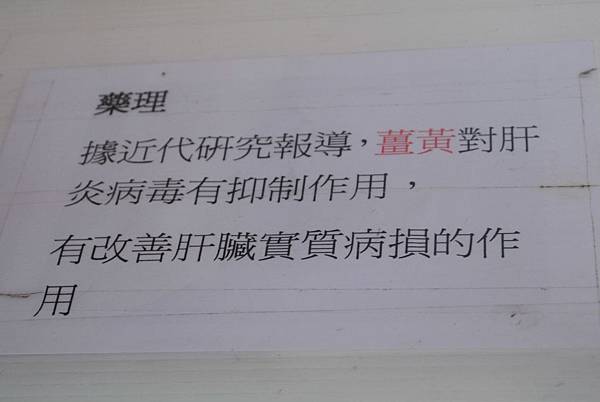 藥理
據近代研究報導，薑黃對肝
炎病毒有抑制作用，
有改善肝臟實質病損的作
用